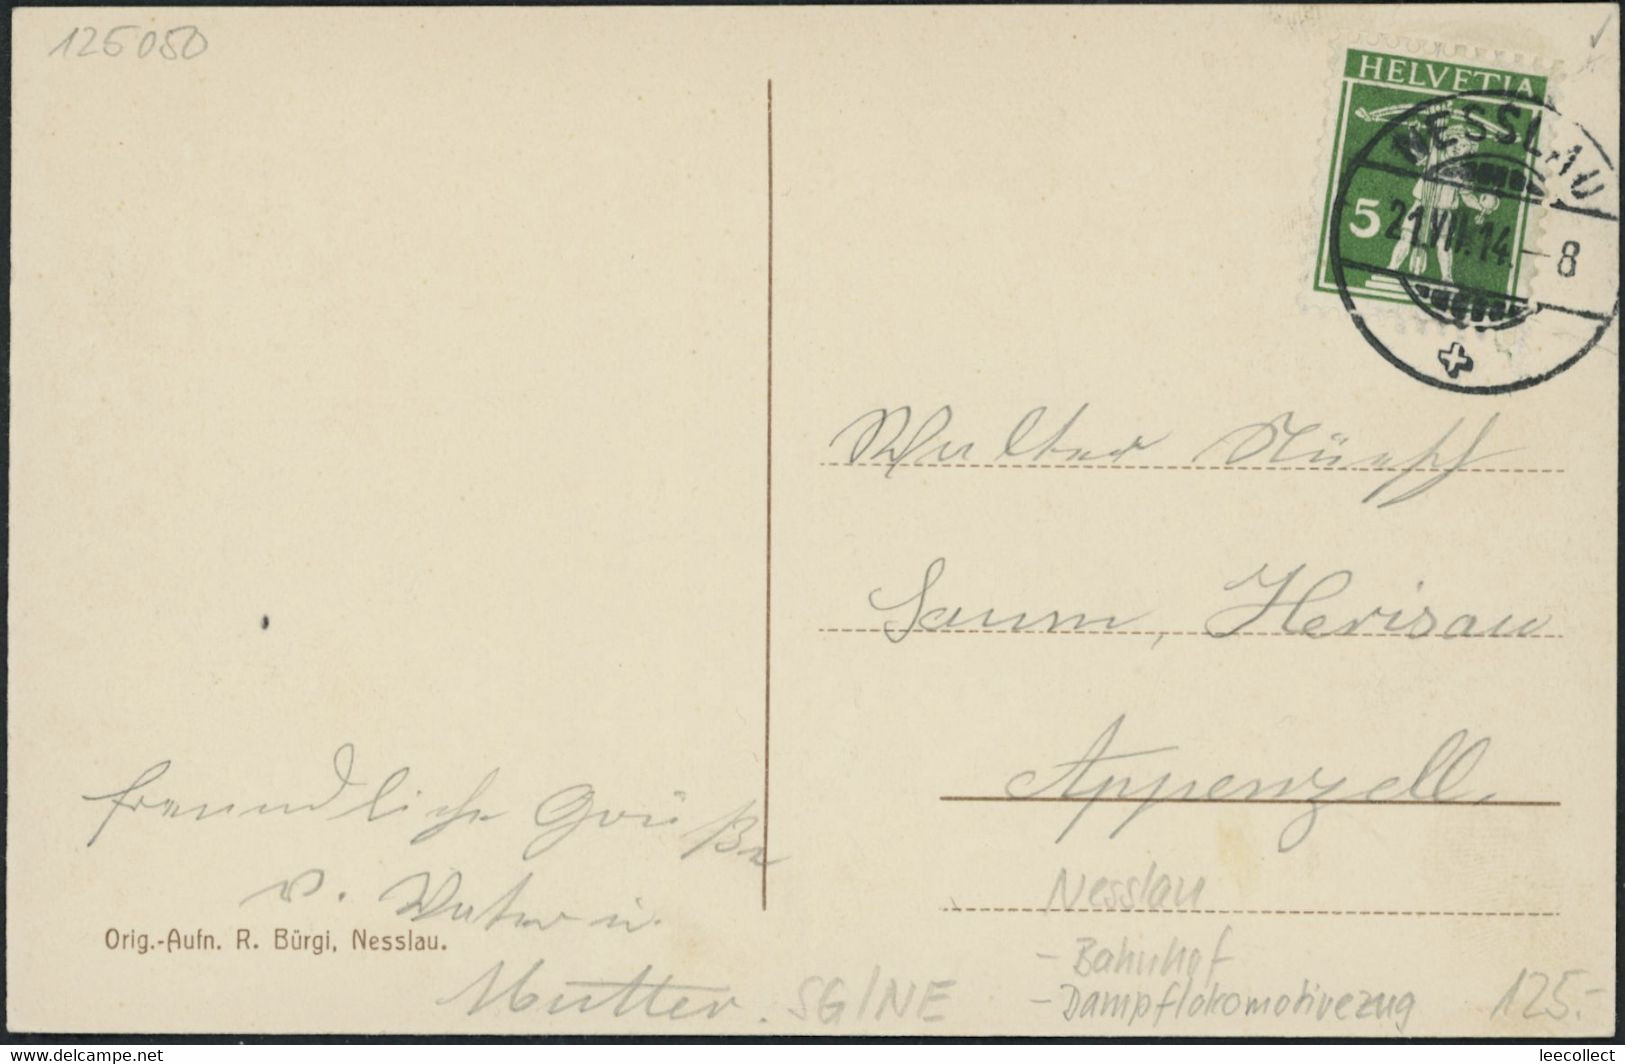 125050
HELVETIA
5
NESSLAU
21.VII.14.-8
Walter Nüesch
Saum, Herisau
Appenzell.
freundliche Grüße
v. Vater u.
Mutter.
Orig.-Aufn. R. Bürgi, Nesslau.
SG/NE
Nesslau
- Bahnhof
- Dampflokomotivezug
125.-
delcampe.net
leecollect